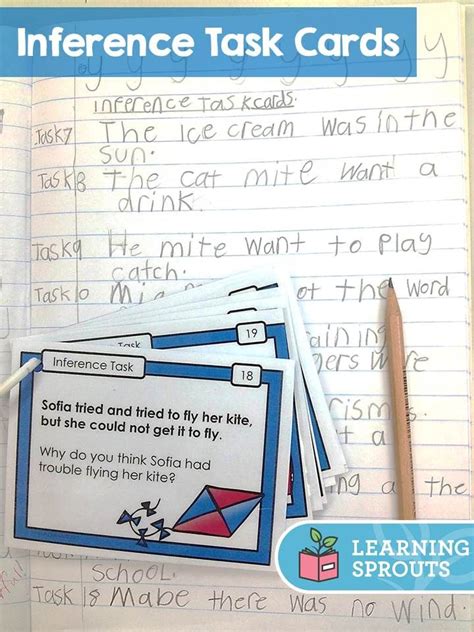 Inference Task Cards
y y y y y y y y
inference taskcards.
Task7 The ice cream was in the
sun.
Task8 The cat mite want a
drink.
Task9 He mite want to play
catch.
Task10 the word
Task
19
Inference Task
18
Sofia tried and tried to fly her kite,
but she could not get it to fly.
Why do you think Sofia had
trouble flying her kite?
a the
LEARNING
SPROUTS
SCHOOL.
Task 18 Mabe there was no wind.